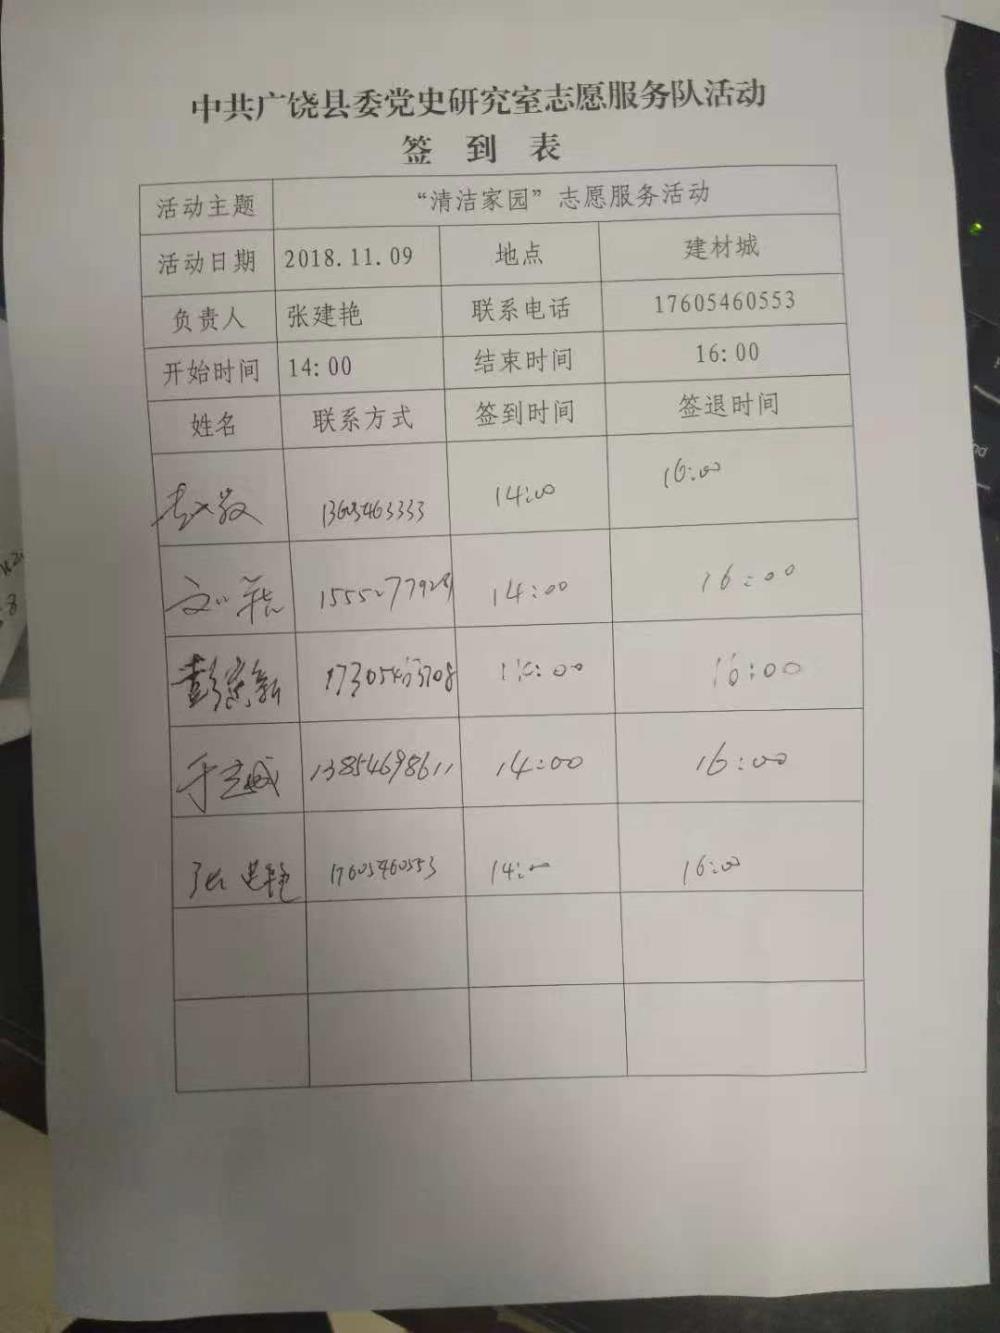 中共广饶县委党史研究室志愿服务队活动
签 到 表
活动主题 “清洁家园”志愿服务活动
活动日期 2018.11.09 地点 建材城
负责人 张建艳 联系电话 17605460553
开始时间 14:00 结束时间 16:00
姓名 联系方式 签到时间 签退时间
14:00 16:00
14:00 16:00
14:00 16:00
13854698611 14:00 16:00
张建艳 17605460553 14:00 16:00